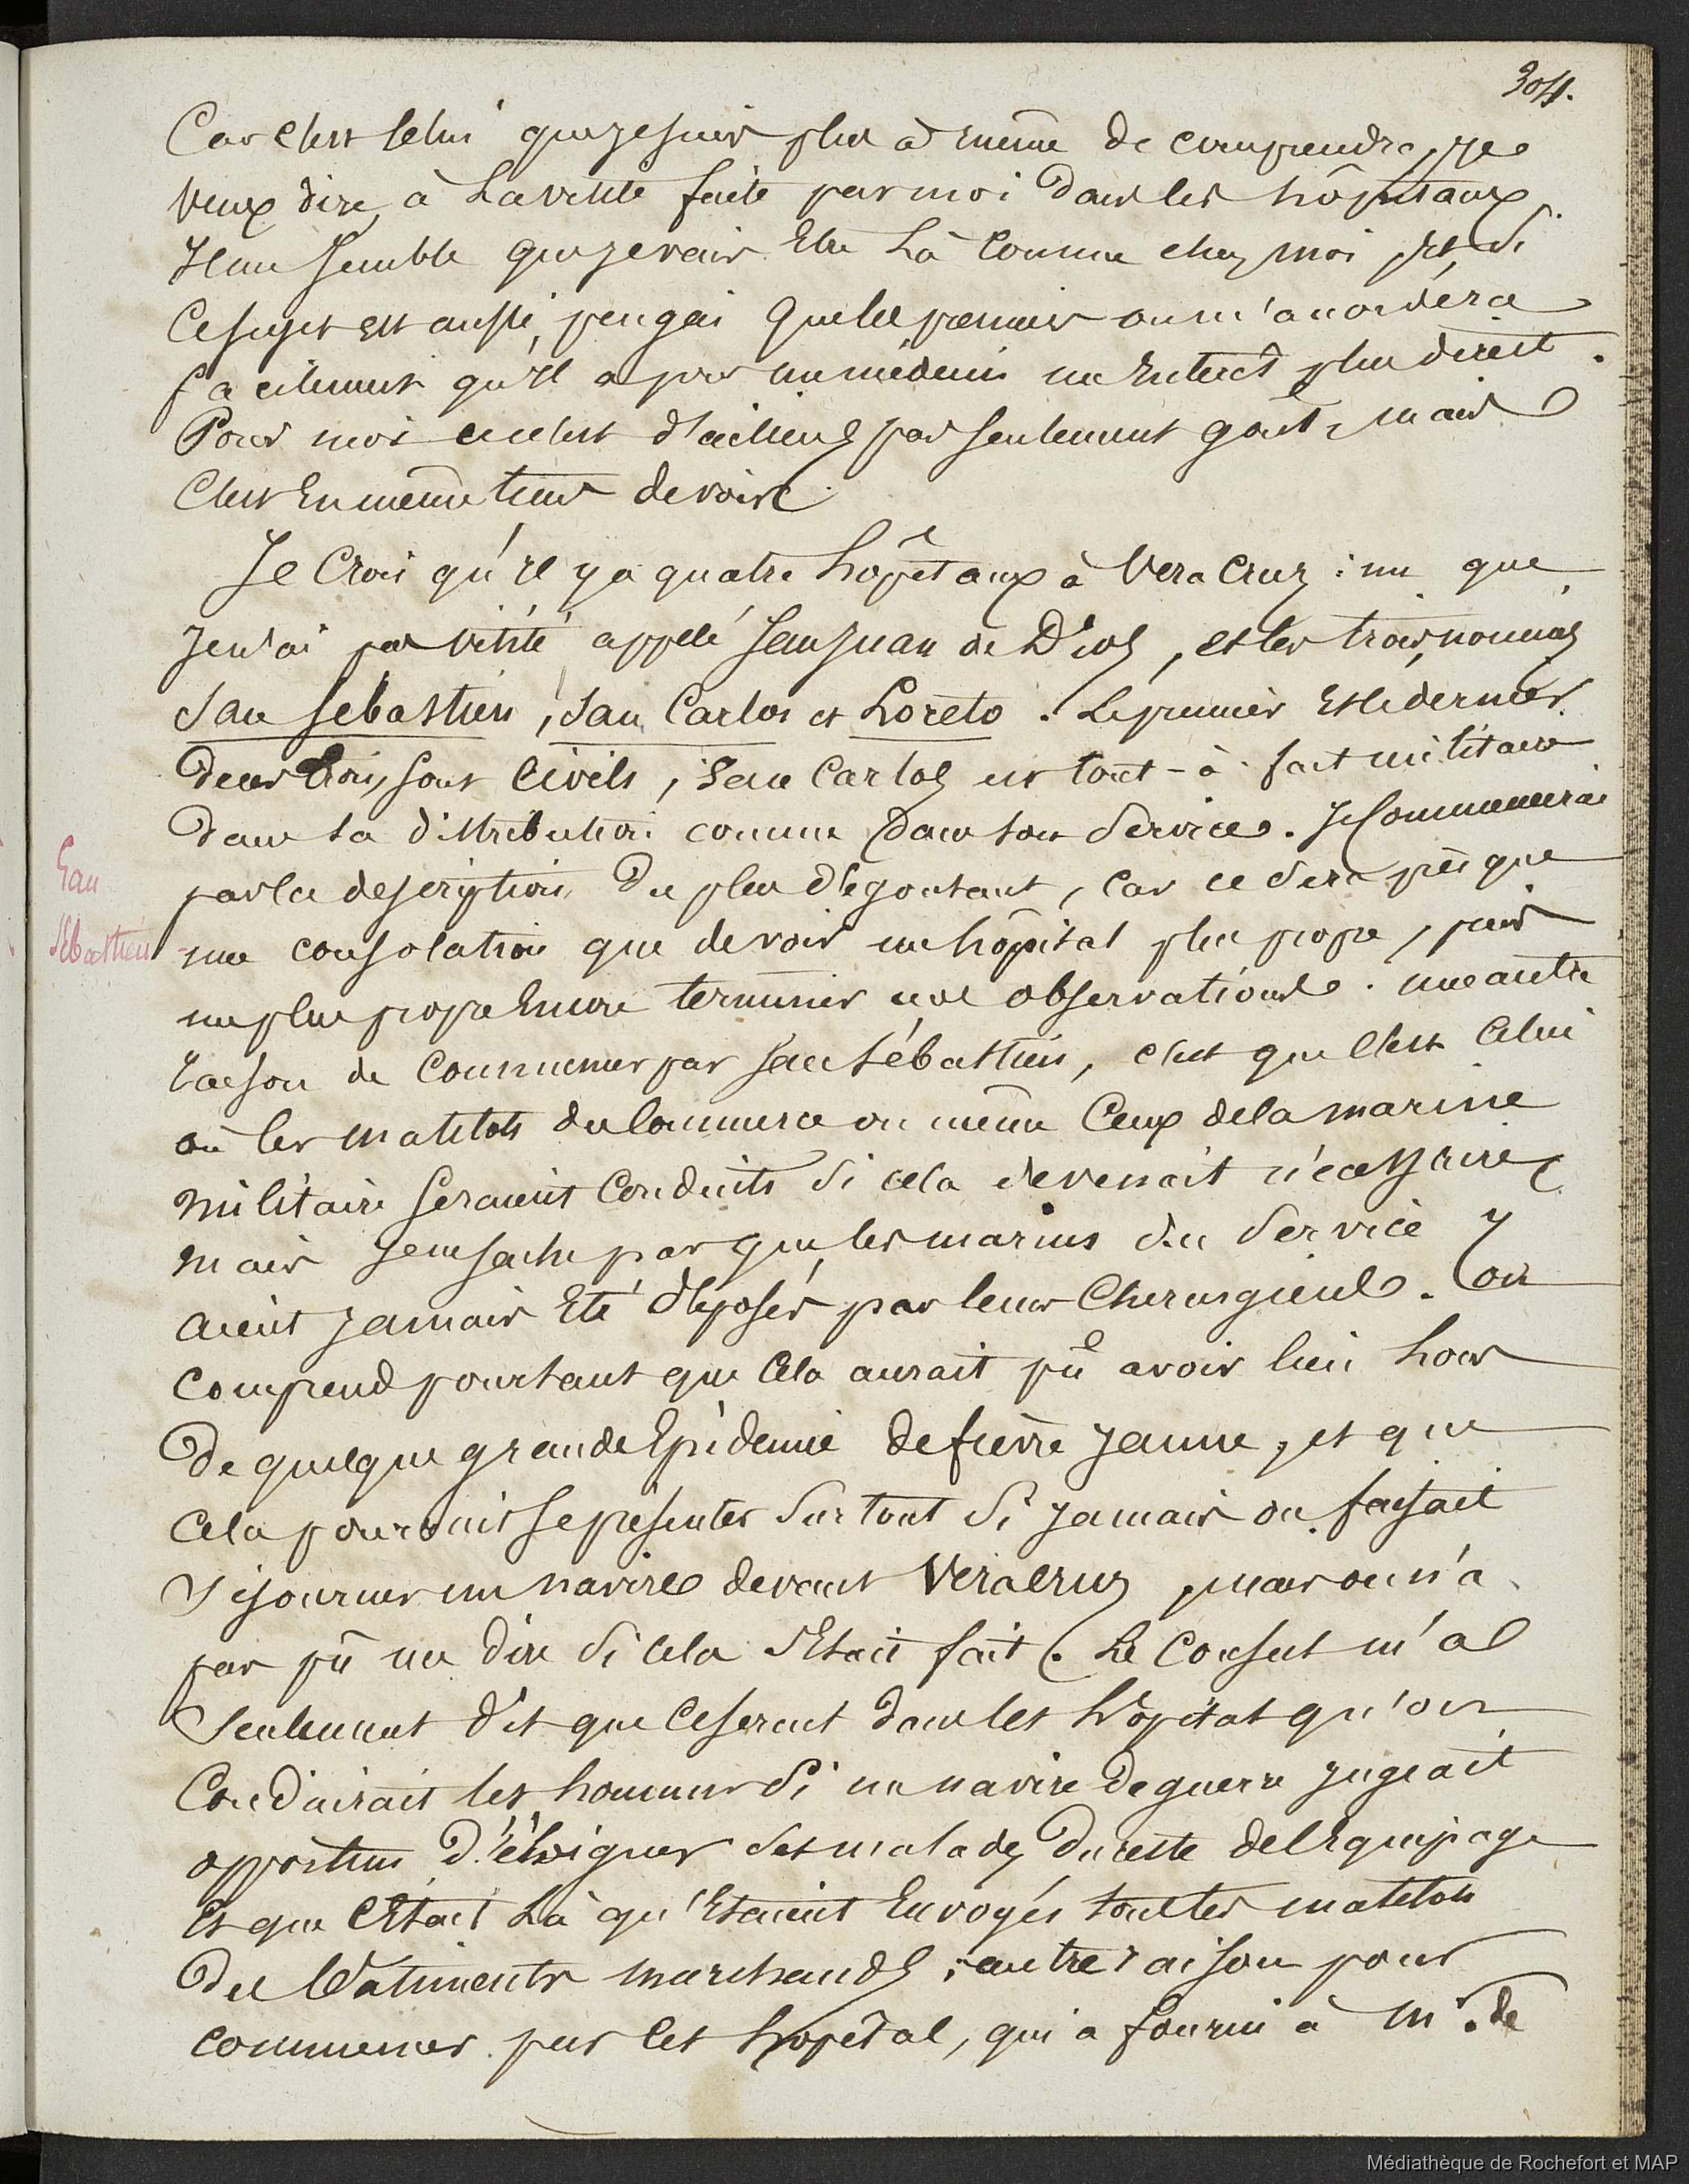 304.
Car c'est celui que je suis plus à même de comprendre, je
veux dire, à la visite faite par moi dans les hôpitaux.
Il me semble que je vais être là comme chez moi, et, si
ce sujet est aussi peu gai que le premier on m'accordera
facilement qu'il a pour un médecin un interêt plus direct.
Pour moi ce n'est d'ailleurs pas seulement goût, mais
c'est en même tems devoir.
Je crois qu'il y a quatre hôpitaux à Vera Cruz : un que
je n'ai pas visité, appelé San Juan de Dios, et les trois, nommés
San Sebastien, San Carlos et Loreto. Le premier et le dernier
de ces trois, sont civils, San Carlos est tout-à-fait militaire
dans sa distribution comme dans son service. Je commencerai
par la description du plus dégoutant, car ce sera presque
une consolation que de voir un hôpital plus propre, puis
un plus propre encore terminer nos observations. une autre
raison de commencer par San Sébastien, c'est que c'est celui
où les matelots du commerce ou même ceux de la marine
militaire seraient conduits si cela devenait nécessaire
mais je ne sache pas que les marins du service y
aient jamais été déposés par leurs chirurgiens. On
comprend pourtant que cela aurait pû avoir lieu hors
de quelque grande épidémie de fièvre jaune, et que
cela pourrait se présenter surtout si jamais on faisait
séjourner un navire devant Vera Cruz, mais on n'a
pas pû me dire si cela s'était fait. Le Consul m'a
seulement dit que ce serait dans cet hôpital qu'on
conduirait les hommes si un navire de guerre jugeait
opportun d'éloigner ses malades du reste de l'équipage
et que c'était là qu'étaient envoyés tous les matelots
des bâtiments marchands ; autre raison pour
commencer par cet hôpital, qui a fourni à Mr. de
San
Sébastien